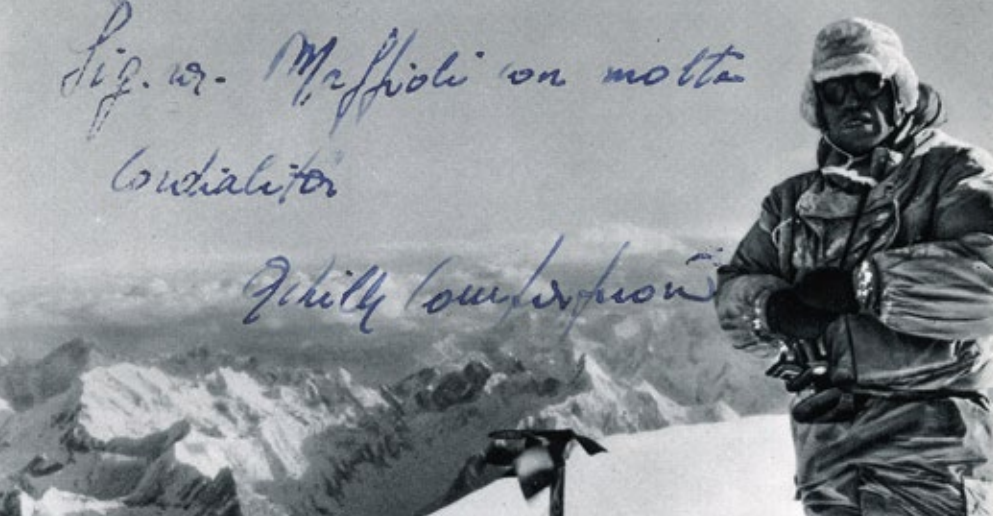 Sig. ra. Maffioli con molta
Cordialità
Achille Compagnoni